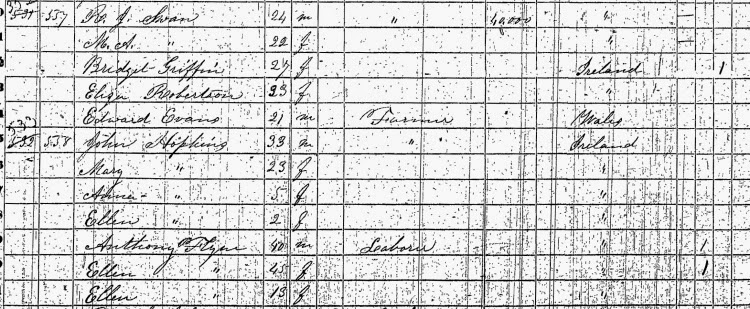 557 R. J. Swan 24 m " 40,000 "
M. A. " 22 f "
Bridget Griffin 27 f Ireland 1
Eliza Robertson 23 f "
Edward Evans 21 m Farmer Wales
533 532 558 John Hopkins 33 m " Ireland
Mary " 23 f "
Anna " 5 f "
Ellen " 2 f "
Anthony Flynn 40 m Laborer " 1
Ellen " 45 f " 1
Ellen " 13 f "